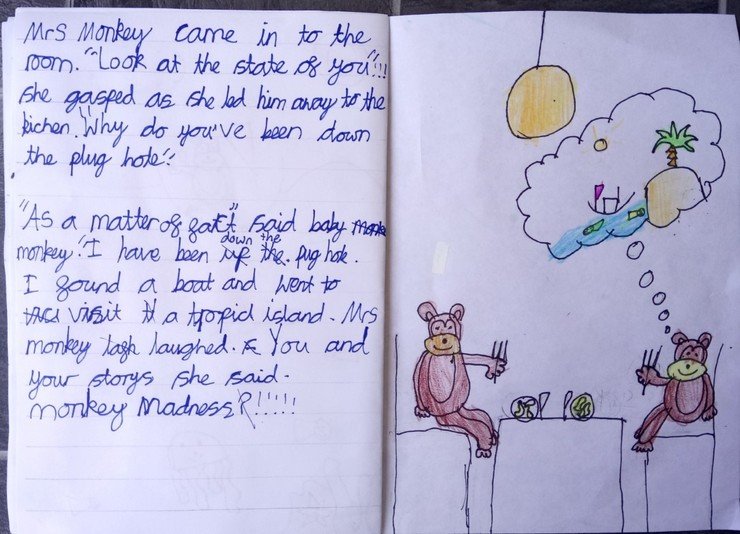 Mrs Monkey came in to the
room. "Look at the state of you"!!!
she gasped as she led him away to the
kichen. Why do you've been down
the plug hole"?
"As a matter of fact" said baby
monkey". I have been down the plug hole.
I found a boat and went to
visit a tropicl island. Mrs
monkey laughed. You and
your storys she said.
monkey Madness?!!!!!